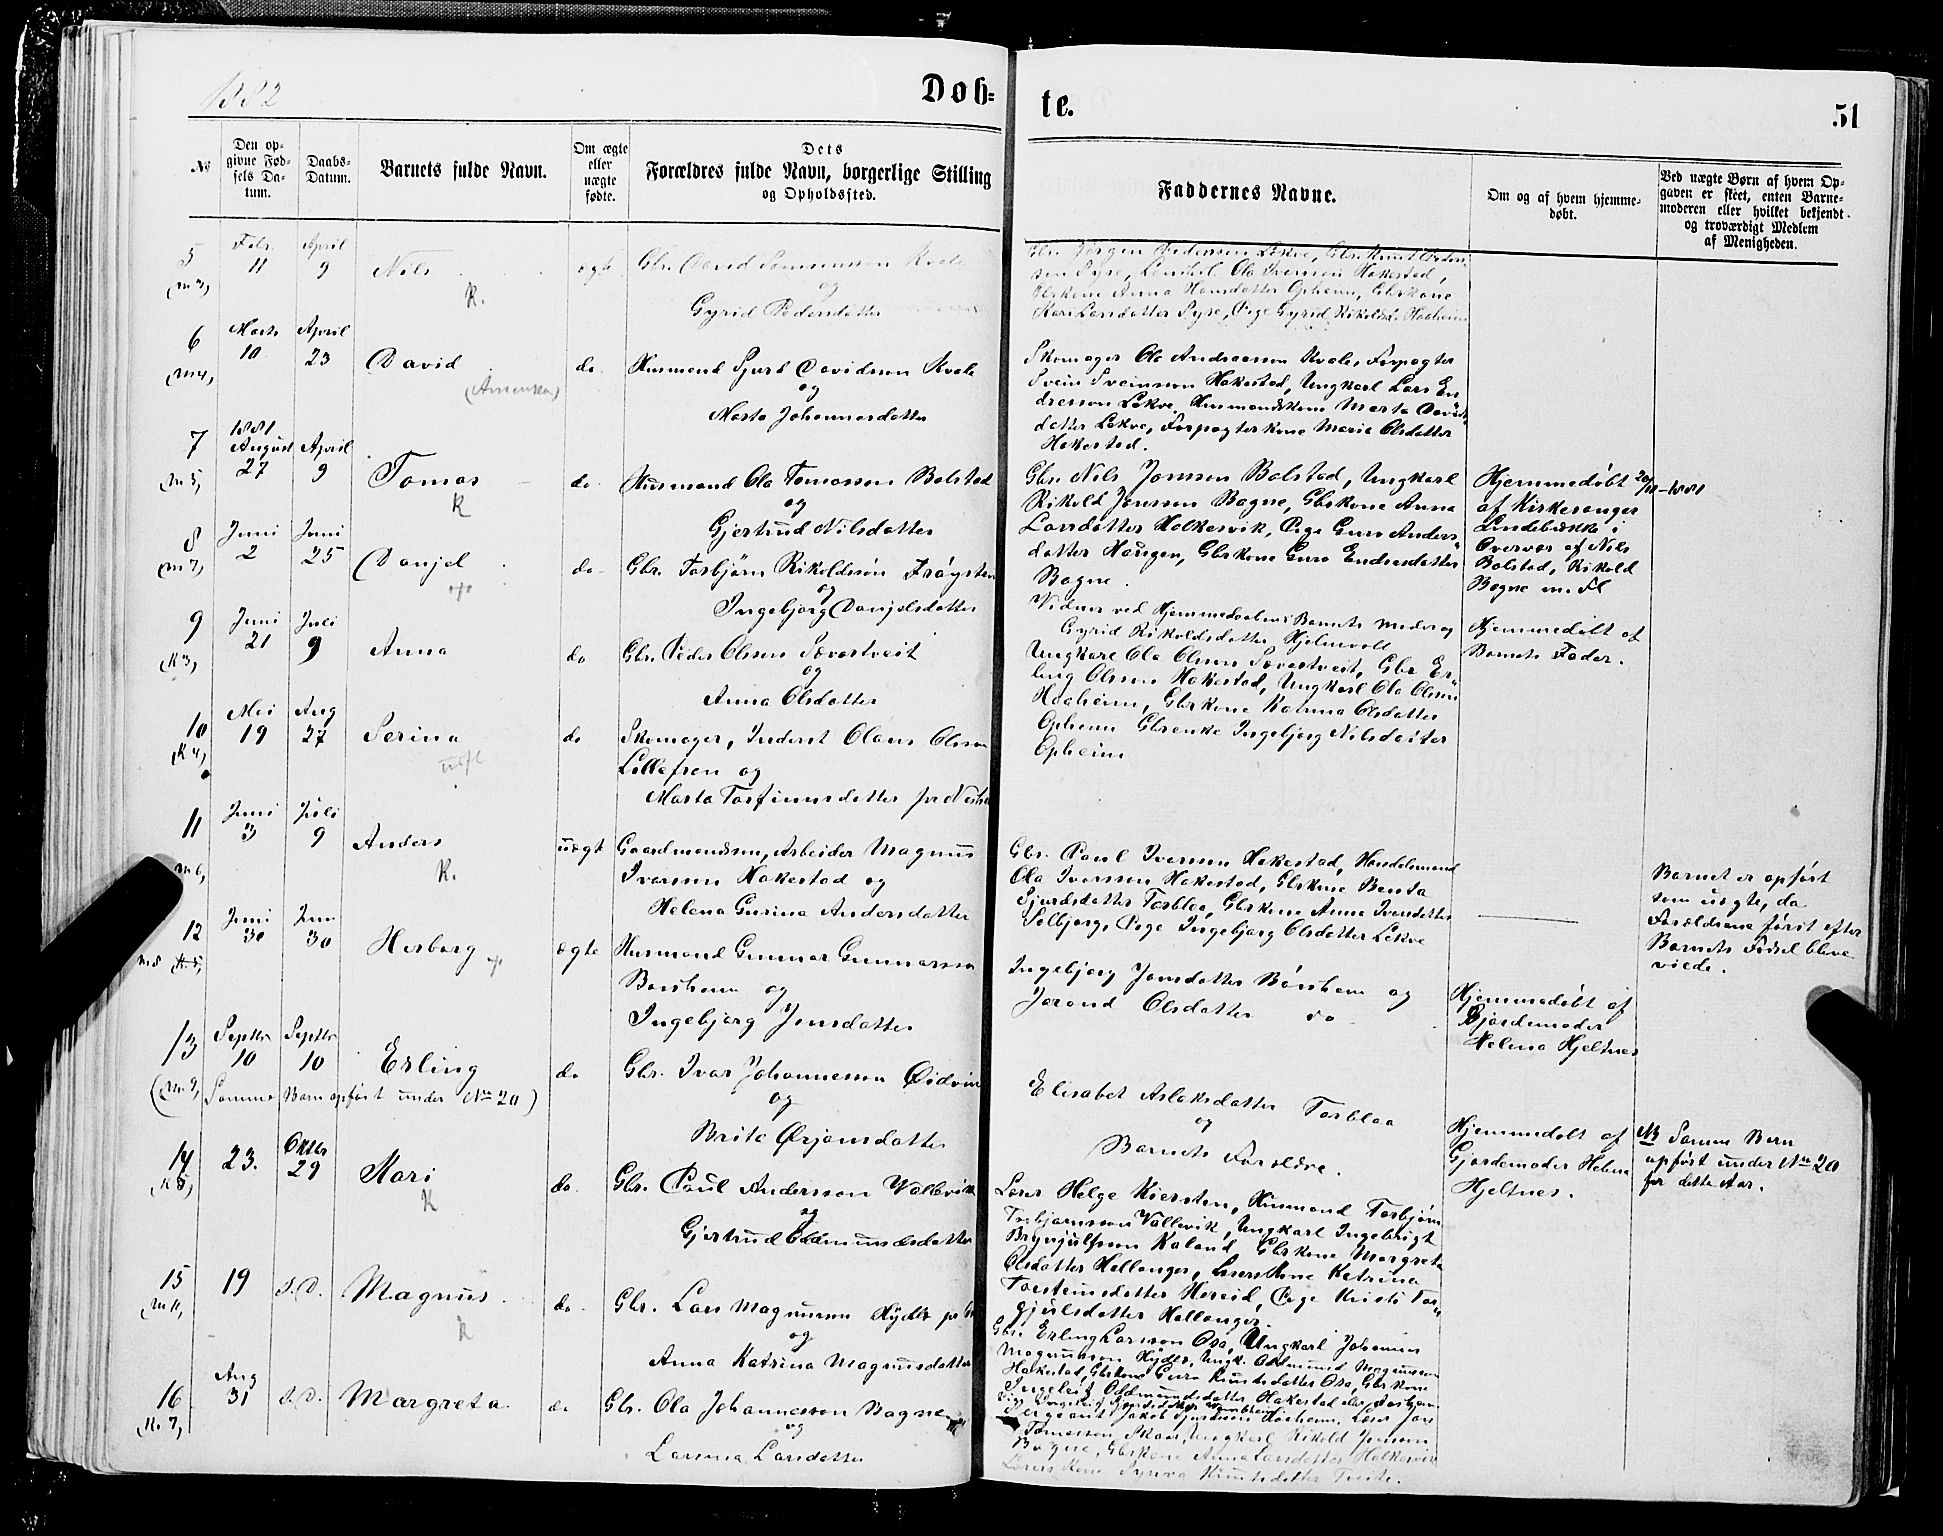 1882
Døb-
te.
51
No
Den op-
givne Fød-
sels Da-
tum.
Daabs-
Datum.
Barnets fulde Navn.
Om ægte
eller
uægte
fødte.
Dets
Forældres fulde Navn, borgerlige Stilling
og Opholdssted.
Faddernes Navne.
Om og af hvem hjemme-
døbt.
Ved uægte Børn af hvem Op-
gaven er skeet, enten Barne-
moderen eller hvilket bekjendt
og troværdigt Medlem
af Menigheden.
5 Febr. 11 April 9 Nils ægte Gbr. David Kvale
(M 3,
K.
og
Gyrid Pedersdatter
Gbr. Jørgen Pedersen Lekve, Gbr. Knut
Syse, Ola Iverson Hakestad,
Gbrkone Anna Hansdatter Opheim, Gbrkone
Kari Larsdatter Syse, Pige Gyrid Rikolsd. Haaheim
6 Marts 10 April 23 David do Husmand Sjurd Davidson Kvale
(M 4,
(Amerika)
og
Marta Johannesdatter
Skomager Ola Andreassen Kvale, Forpagter
Svein Sveinson Hakestad, Ungkarl Lars En
dresson Lekve, Husmandskone Marta Davids
datter Lekve, Forpagterkone Marie Olsdatter
Hakestad.
7 1881 August 27 April 9 Tomas do Husmand Ola Tomasson Bolstad
(M 5,
K
og
Gjertrud Nilsdatter
Gbr. Nils Jonsson Bolstad, Ungkarl
Rikold Jonsson Bagne, Gbrkone Anna
Larsdatter Holkesvik, Pige Guro Anders
datter Haugen, Gbrkone Guro Endresdatter
Bagne.
Hjemmedøbt -1881
af Kirkesanger
Lindebække i
Overvær af Nils
Bolstad, Rikold
Bagne m. Fl
8 Juni 2 Juni 25 Danjel do Gbr. Torbjørn Rikoldsson Frøysten
(M 7,
og
Ingebjørg Danjelsdatter
Vidner ved Hjemmedaaben: Barnets Moder og
Gyrid Rikoldsdatter Hjelmevoll
9 Juni 21 Juli 9 Anna do Gbr. Peder Olsen Sævartveit
(K 3,
og
Anna Olsdatter
Ungkarl Ola Olsen Sævartveit, Gbr. Er
ling Olsen Hakestad, Ungkarl Ola Olsen
Haaheim, Gbrkone Katrina Olsdatter
Opheim Gbrenke Ingebjørg Nilsdatter
Opheim
Hjemmedøbt af
Barnets Fader.
10 Mai 19 Aug 27 Serina do Skomager, Inderst Olaus Olsson
(K 4,
Lillefosen og
Marta Torfinnsdatter
11 Juni 3 Juli 9 Anders uægt Gaardmandssøn, Arbeider Magnus
M 6,
K.
Iversson Hakestad og
Helena Gurina Andersdatter
Gbr. Paul Iversson Hakestad, Handelsmand
Ola Iversson Hakestad, Gbrkone Benta
Sjursdatter Torblaa, Gbrkone Anna Iversdatter
Solbjørg, Pige Ingebjørg Olsdatter Lekve
Barnet er opført
som uægte, da
Forældrene først efter
Barnets Fødsel bleve
viede.
12 Juni 30 Juni 30 Herborg ægte Husmand Gunnar Gunnarsson
M 8 (K 5,
Børsheim og
Ingebjørg Jonsdatter
Ingebjørg Jonsdatter Børsheim og
Jorand Olsdatter do
Hjemmedøbt af
Gjordemoder
Helena Hjeltnes
13 Septbr 10 Septbr 10 Erling do Gbr. Ivar Johannesson Øidvin
(M 9, Samme Barn opført under No 20)
og
Brita Ørjansdatter
Elisabet Aslaksdatter Torblaa
og
Barnets Forældre.
Hjemmedøbt af
Gjordemoder Helena
Hjeltnes.
NB Samme Barn
opført under No 20
for dette Aar.
14 23. Oktbr 29 Kari do. Gbr. Paul Andersson Vallevik
(K 6,
K
og
Gjertrud Oddmundsdatter
Lærer Helge Kjersten, Husmand Torbjørn
Torbjørnsson Vallevik, Ungkarl Ingebrigt
Brynjulfsson Kaland Gbrkone Margreta
Olsdatter Hellanger, Lærerskone Katrina
Torsteinsdatter Hereid, Pige Kristi Tor
gjulsdatter Hellanger.
15 19 s.D. Magnus do Gbr. Lars Magnusson Hyldr
(M 11,
K
og
Anna Katrina Magnusdatter
Gbr. Erling Larsson Osa, Ungkarl Johannes
Magnusson Hyldr, Ungk. Oddmund Magnusson
Hakestad, Gbrkone Guro Knutsdatter Osa, Gbrkone
Ingeleiv Oddmundsdatter Hakestad
16 Aug 31 s.D. Margreta do Gbr. Ola Johannesson Bagne
(K. 7,
og
Larsina Larsdatter
Sergeant Jakob Sjurdsson Haaheim, Lærer Jon
Tomasson Skaar, Ungkarl Rikold Jonsson
Bagne, Gbrkone Anna Larsdatter Holkesvik
Lærerskone Synva Knutsdatter Tveite.